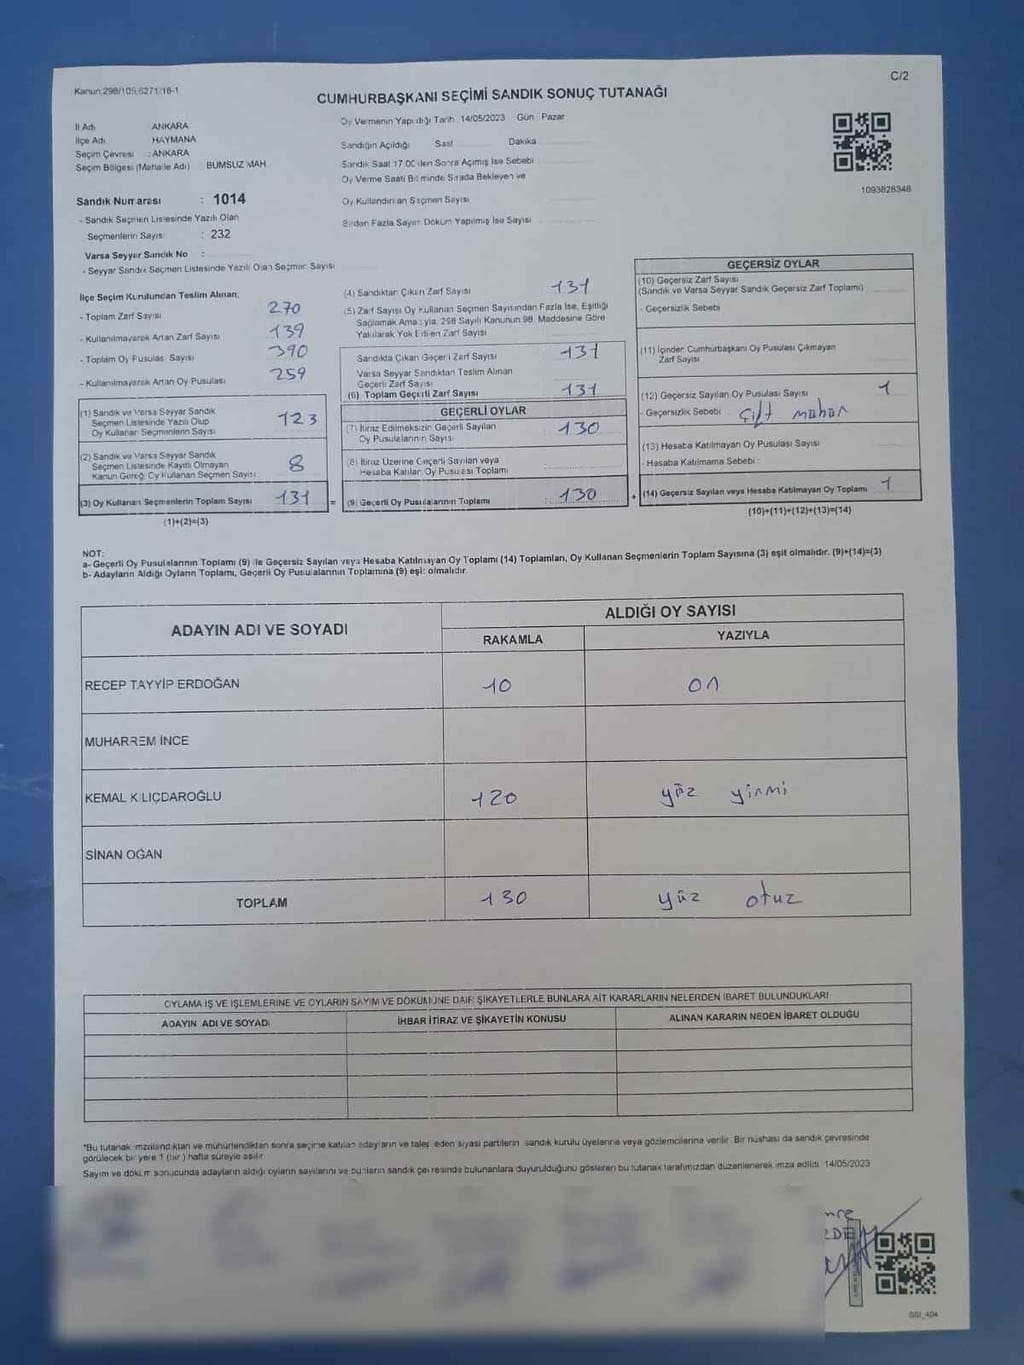 Kanun:298/105,6271/18-1
C/2
CUMHURBAŞKANI SEÇİMİ SANDIK SONUÇ TUTANAĞI
İl Adı ANKARA
İlçe Adı HAYMANA
Seçim Çevresi : ANKARA
Seçim Bölgesi (Mahalle Adı) BUMSUZ MAH.
Oy Vermenin Yapıldığı Tarih 14/05/2023 Gün : Pazar
Sandığın Açıldığı Saat Dakika
Sandık Saat 17.00'den Sonra Açılmış İse Sebebi
Oy Verme Saati Bitiminde Sırada Bekleyen ve
Oy Kullandırılan Seçmen Sayısı
Birden Fazla Sayım Döküm Yapılmış İse Sayısı
1093828348
Sandık Numarası : 1014
- Sandık Seçmen Listesinde Yazılı Olan
Seçmenlerin Sayısı : 232
Varsa Seyyar Sandık No :
- Seyyar Sandık Seçmen Listesinde Yazılı Olan Seçmen Sayısı
İlçe Seçim Kurulundan Teslim Alınan;
- Toplam Zarf Sayısı 270
- Kullanılmayarak Artan Zarf Sayısı 139
- Toplam Oy Pusulası Sayısı 390
- Kullanılmayarak Artan Oy Pusulası 259
(1) Sandık ve Varsa Seyyar Sandık
Seçmen Listesinde Yazılı Olup
Oy Kullanan Seçmenlerin Sayısı 123
(2) Sandık ve Varsa Seyyar Sandık
Seçmen Listesinde Kayıtlı Olmayan
Kanun Gereği Oy Kullanan Seçmen Sayısı 8
(3) Oy Kullanan Seçmenlerin Toplam Sayısı 131 =
(1)+(2)=(3)
(4) Sandıktan Çıkan Zarf Sayısı 131
(5) Zarf Sayısı Oy Kullanan Seçmen Sayısından Fazla İse, Eşitliği
Sağlamak Amacıyla, 298 Sayılı Kanunun 98. Maddesine Göre
Yakılarak Yok Edilen Zarf Sayısı
Sandıkta Çıkan Geçerli Zarf Sayısı 131
Varsa Seyyar Sandıktan Teslim Alınan
Geçerli Zarf Sayısı
(6) Toplam Geçerli Zarf Sayısı 131
GEÇERLİ OYLAR
(7) İtiraz Edilmeksizin Geçerli Sayılan
Oy Pusulalarının Sayısı 130
(8) İtiraz Üzerine Geçerli Sayılan veya
Hesaba Katılan Oy Pusulası Toplamı
(9) Geçerli Oy Pusulalarının Toplamı : 130 +
GEÇERSİZ OYLAR
(10) Geçersiz Zarf Sayısı
(Sandık ve Varsa Seyyar Sandık Geçersiz Zarf Toplamı)
- Geçersizlik Sebebi
(11) İçinden Cumhurbaşkanı Oy Pusulası Çıkmayan
Zarf Sayısı
(12) Geçersiz Sayılan Oy Pusulası Sayısı 1
- Geçersizlik Sebebi çift mühür
(13) Hesaba Katılmayan Oy Pusulası Sayısı
- Hesaba Katılmama Sebebi :
(14) Geçersiz Sayılan veya Hesaba Katılmayan Oy Toplamı 1
(10)+(11)+(12)+(13)=(14)
NOT:
a- Geçerli Oy Pusulalarının Toplamı (9) ile Geçersiz Sayılan veya Hesaba Katılmayan Oy Toplamı (14) Toplamları, Oy Kullanan Seçmenlerin Toplam Sayısına (3) eşit olmalıdır. (9)+(14)=(3)
b- Adayların Aldığı Oyların Toplamı, Geçerli Oy Pusulalarının Toplamına (9) eşit olmalıdır.
ADAYIN ADI VE SOYADI
ALDIĞI OY SAYISI
RAKAMLA YAZIYLA
RECEP TAYYİP ERDOĞAN 10 on
MUHARREM İNCE
KEMAL KILIÇDAROĞLU 120 yüz yirmi
SİNAN OĞAN
TOPLAM 130 yüz otuz
OYLAMA İŞ VE İŞLEMLERİNE VE OYLARIN SAYIM VE DÖKÜMÜNE DAİR ŞİKAYETLERLE BUNLARA AİT KARARLARIN NELERDEN İBARET BULUNDUKLARI
ADAYIN ADI VE SOYADI İHBAR İTİRAZ VE ŞİKAYETİN KONUSU ALINAN KARARIN NEDEN İBARET OLDUĞU
*Bu tutanak imzalandıktan ve mühürlendikten sonra seçime katılan adayların ve talep eden siyasi partilerin sandık kurulu üyelerine veya gözlemcilerine verilir. Bir nüshası da sandık çevresinde
görülecek bir yere 1 (bir) hafta süreyle asılır.
Sayım ve döküm sonucunda adayların aldığı oyların sayılarını ve bunların sandık çevresinde bulunanlara duyurulduğunu gösteren bu tutanak tarafımızdan düzenlenerek imza edildi. 14/05/2023